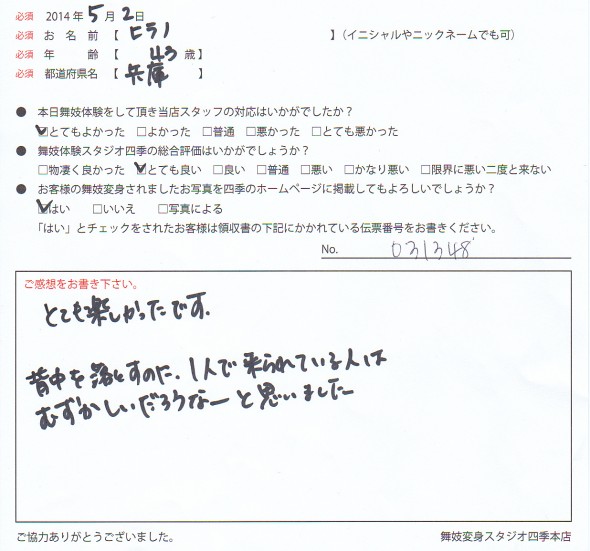 必須 2014年5月2日
必須 お 名 前 【 ヒラノ 】(イニシャルやニックネームでも可)
必須 年 齢 【 43 歳】
必須 都道府県名 【 兵庫 】
● 本日舞妓体験をして頂き当店スタッフの対応はいかがでしたか？
☑とてもよかった □よかった □普通 □悪かった □とても悪かった
● 舞妓体験スタジオ四季の総合評価はいかがでしょうか？
□物凄く良かった ☑とても良い □良い □普通 □悪い □かなり悪い □限界に悪い二度と来ない
● お客様の舞妓変身されましたお写真を四季のホームページに掲載してもよろしいでしょうか？
☑はい □いいえ □写真による
「はい」とチェックをされたお客様は領収書の下記にかかれている伝票番号をお書きください。
No. 031348
ご感想をお書き下さい。
とても楽しかったです.
背中を落とすのに、1人で来られている人は
むずかしいだろうなーと思いました
ご協力ありがとうございました。
舞妓変身スタジオ四季本店